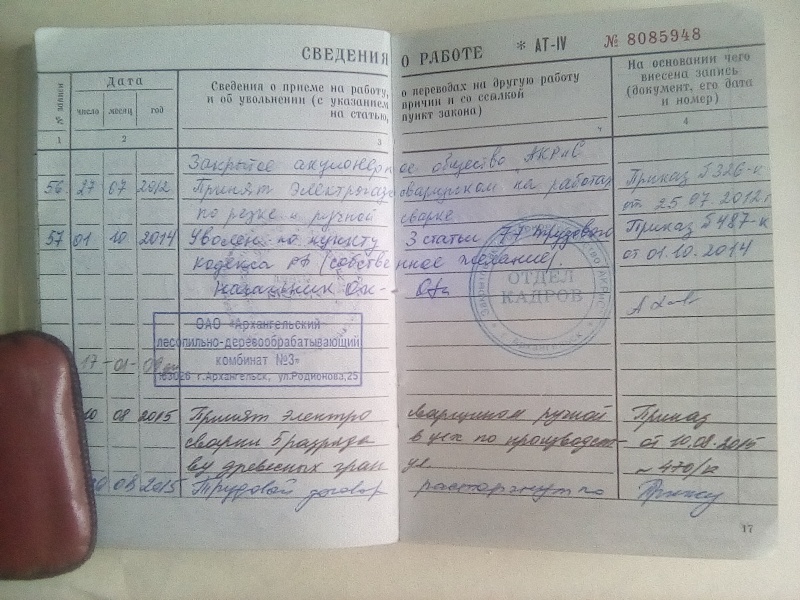 СВЕДЕНИЯ О РАБОТЕ * АТ-IV № 8085948
№ записи
Дата
число месяц год
Сведения о приеме на работу, о переводах на другую работу
и об увольнении (с указанием причин и со ссылкой
на статью, пункт закона)
На основании чего
внесена запись
(документ, его дата
и номер)
1 2 3 4
Закрытое акционерное общество
56. 27 07 2012 Принят электрогазосварщиком на работах Приказ 326-к
по резке и ручной сварке от 25 07 2012г
57 01 10 2014 Уволен по пункту 3 статьи 77 Трудового Приказ 487-к
кодекса РФ (собственное желание). от 01.10.2014
Начальник ОК
ОТДЕЛ
КАДРОВ
ОАО «Архангельский
лесопильно-деревообрабатывающий
комбинат №3»
163026 г.Архангельск, ул.Родионова,25
17 - 01 -
08 2015 Принят электросварщиком ручной Приказ
сварки 5 разряда в цех по производст- от 10.08.2015
ву древесных гранул ~ 470/к
2015 Трудовой договор расторгнут по Приказ
17